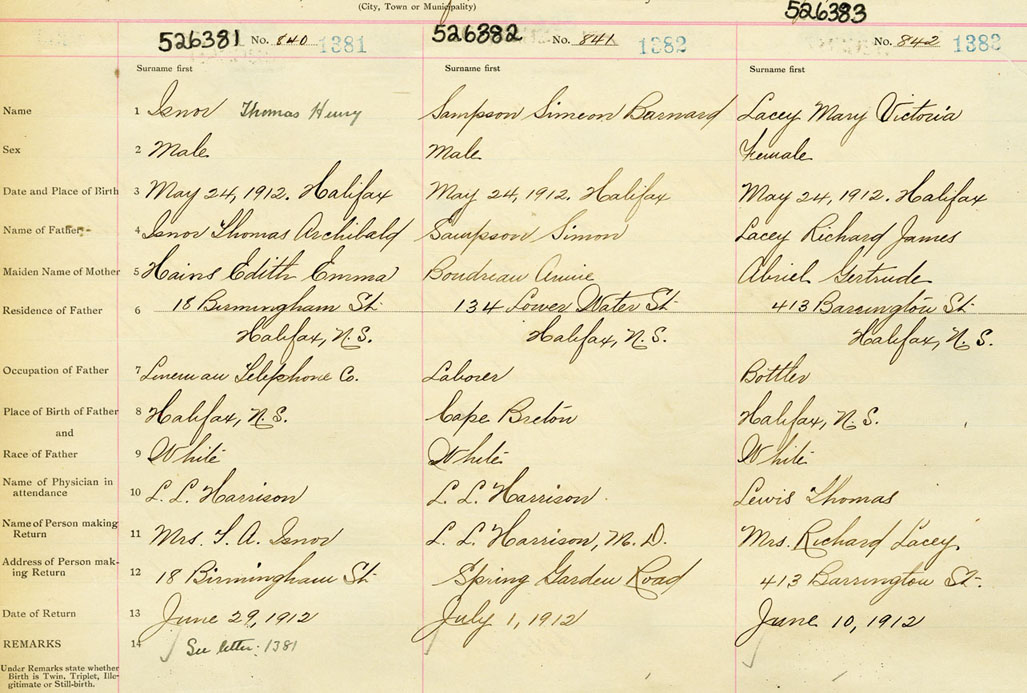 (City, Town or Municipality)
526381 No. 840 1381
526382 No. 841 1382
526383 No. 842 1383
Surname first Surname first Surname first
Name 1 Isnor Thomas Henry Sampson Simeon Barnard Lacey Mary Victoria
Sex 2 Male Male Female
Date and Place of Birth 3 May 24, 1912. Halifax May 24, 1912. Halifax May 24, 1912. Halifax
Name of Father 4 Isnor Thomas Archibald Sampson Simon Lacey Richard James
Maiden Name of Mother 5 Hains Edith Emma Boudreau Annie Abriel Gertrude
Residence of Father 6 18 Birmingham St 134 Lower Water St 413 Barrington St
Halifax, N.S. Halifax, N.S. Halifax, N.S.
Occupation of Father 7 Lineman Telephone Co. Laborer Bottler
Place of Birth of Father 8 Halifax, N.S. Cape Breton Halifax, N.S.
and
Race of Father 9 White White White
Name of Physician in
attendance 10 L. L. Harrison L. L. Harrison Lewis Thomas
Name of Person making
Return 11 Mrs. T. A. Isnor L. L. Harrison, M.D. Mrs. Richard Lacey
Address of Person mak-
ing Return 12 18 Birmingham St Spring Garden Road 413 Barrington St.
Date of Return 13 June 29, 1912 July 1, 1912 June 10, 1912
REMARKS 14 See letter: 1381
Under Remarks state whether
Birth is Twin, Triplet, Ille-
gitimate or Still-birth.